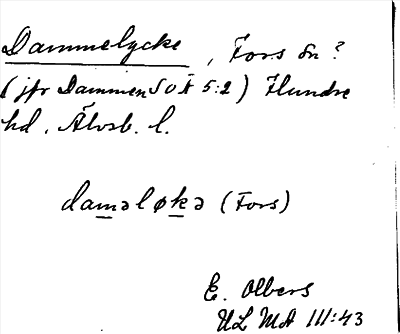 Dammelycke, Fors sn?
(jfr Dammen SOÄ 5:2) Flundre
hd, Älvsb. l.
damələkə (Fors)
E. Olbers
ULMA 111:43